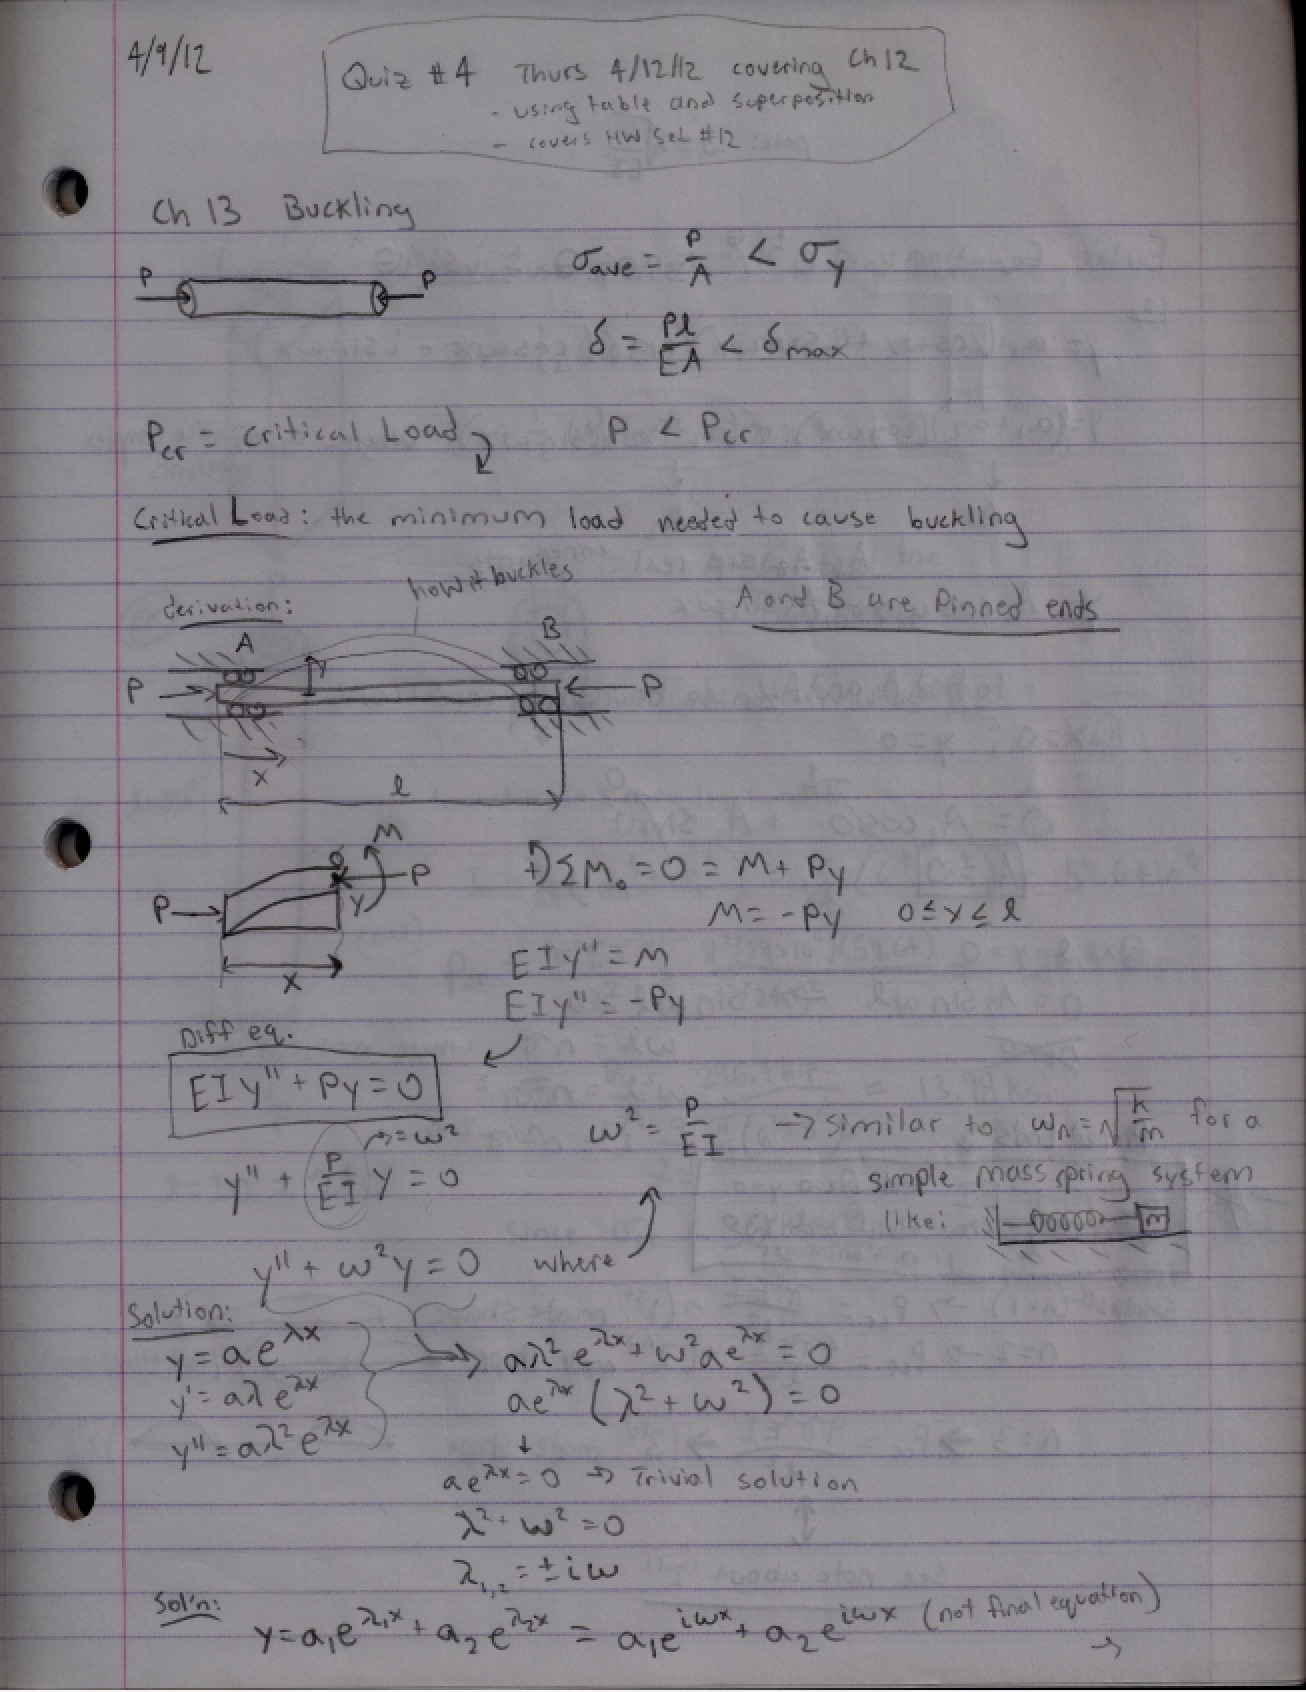 4/9/12
Quiz #4 Thurs 4/12/12 covering Ch 12
- using table and superposition
- covers HW Set #12
Ch 13 Buckling
P P
σave = P/A < σy
δ = Pl/EA < δmax
Pcr = Critical Load P < Pcr
Critical Load: the minimum load needed to cause buckling
how it buckles
derivation:
A and B are Pinned ends
A B
y
P P
x
l
M
P
O
P
y
x
+) ΣMo = 0 = M + Py
M = -Py 0 ≤ x ≤ l
EIy'' = M
EIy'' = -Py
Diff eq.
EIy'' + Py = 0
→ = ω²
ω² = P/EI → similar to ωn = √k/m for a
simple mass spring system
like: m
y'' + P/EI y = 0
y'' + ω²y = 0 where
Solution:
y = ae^λx
y' = aλe^λx
y'' = aλ²e^λx
aλ²e^λx + ω²ae^λx = 0
ae^λx (λ² + ω²) = 0
ae^λx = 0 → Trivial solution
λ² + ω² = 0
λ1,2 = ± iω
Sol'n:
y = a₁e^λ₁x + a₂e^λ₂x = a₁e^iωx + a₂e^iωx (not final equation)
→